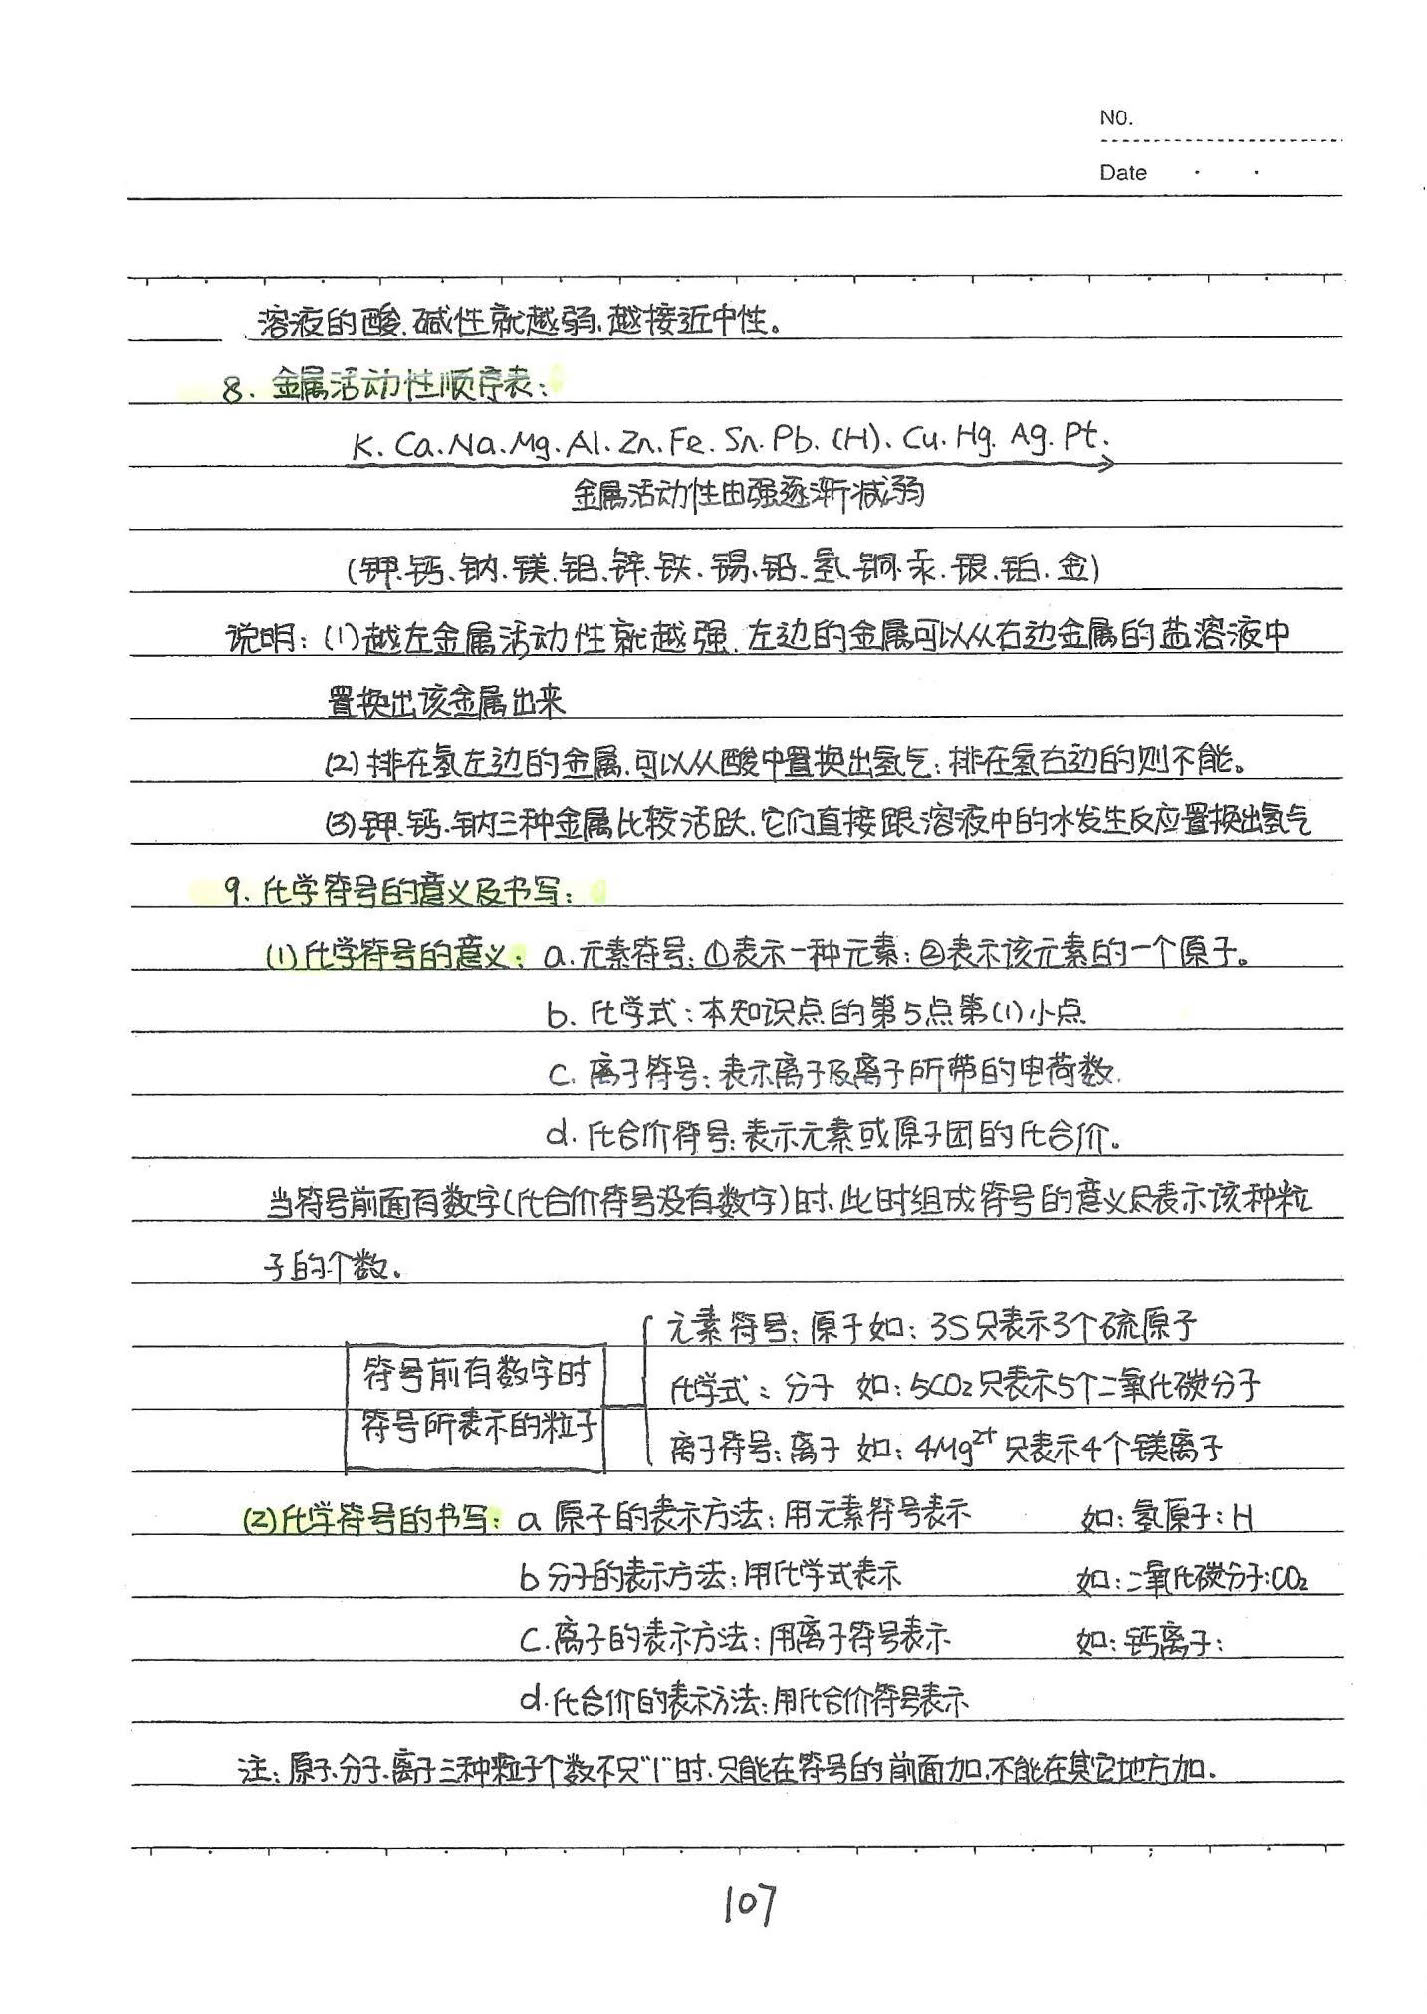 NO.
Date
溶液的酸、碱性就越弱、越接近中性。
8. 金属活动性顺序表：
K. Ca. Na. Mg. Al. Zn. Fe. Sn. Pb. (H). Cu. Hg. Ag. Pt.
金属活动性由强逐渐减弱
(钾、钙、钠、镁、铝、锌、铁、锡、铅、氢、铜、汞、银、铂、金)
说明：(1)越左金属活动性就越强、左边的金属可以从右边金属的盐溶液中
置换出该金属出来
(2)排在氢左边的金属、可以从酸中置换出氢气；排在氢右边的则不能。
(3)钾、钙、钠三种金属比较活跃、它们直接跟溶液中的水发生反应置换出氢气
9. 化学符号的意义及书写：
(1)化学符号的意义：a.元素符号：①表示一种元素；②表示该元素的一个原子。
b. 化学式：本知识点的第5点第(1)小点
c. 离子符号：表示离子及离子所带的电荷数.
d. 化合价符号：表示元素或原子团的化合价。
当符号前面有数字(化合价符号没有数字)时、此时组成符号的意义只表示该种粒
子的个数。
元素符号：原子如：3S只表示3个硫原子
符号前有数字时
化学式：分子 如：5CO₂只表示5个二氧化碳分子
符号所表示的粒子
离子符号：离子 如：4Mg²⁺只表示4个镁离子
(2)化学符号的书写：a 原子的表示方法：用元素符号表示 如：氢原子：H
b 分子的表示方法：用化学式表示 如：二氧化碳分子：CO₂
C.离子的表示方法：用离子符号表示 如：钙离子：
d.化合价的表示方法：用化合价符号表示
注：原子、分子、离子三种粒子个数不只"1"时、只能在符号的前面加、不能在其它地方加.
107